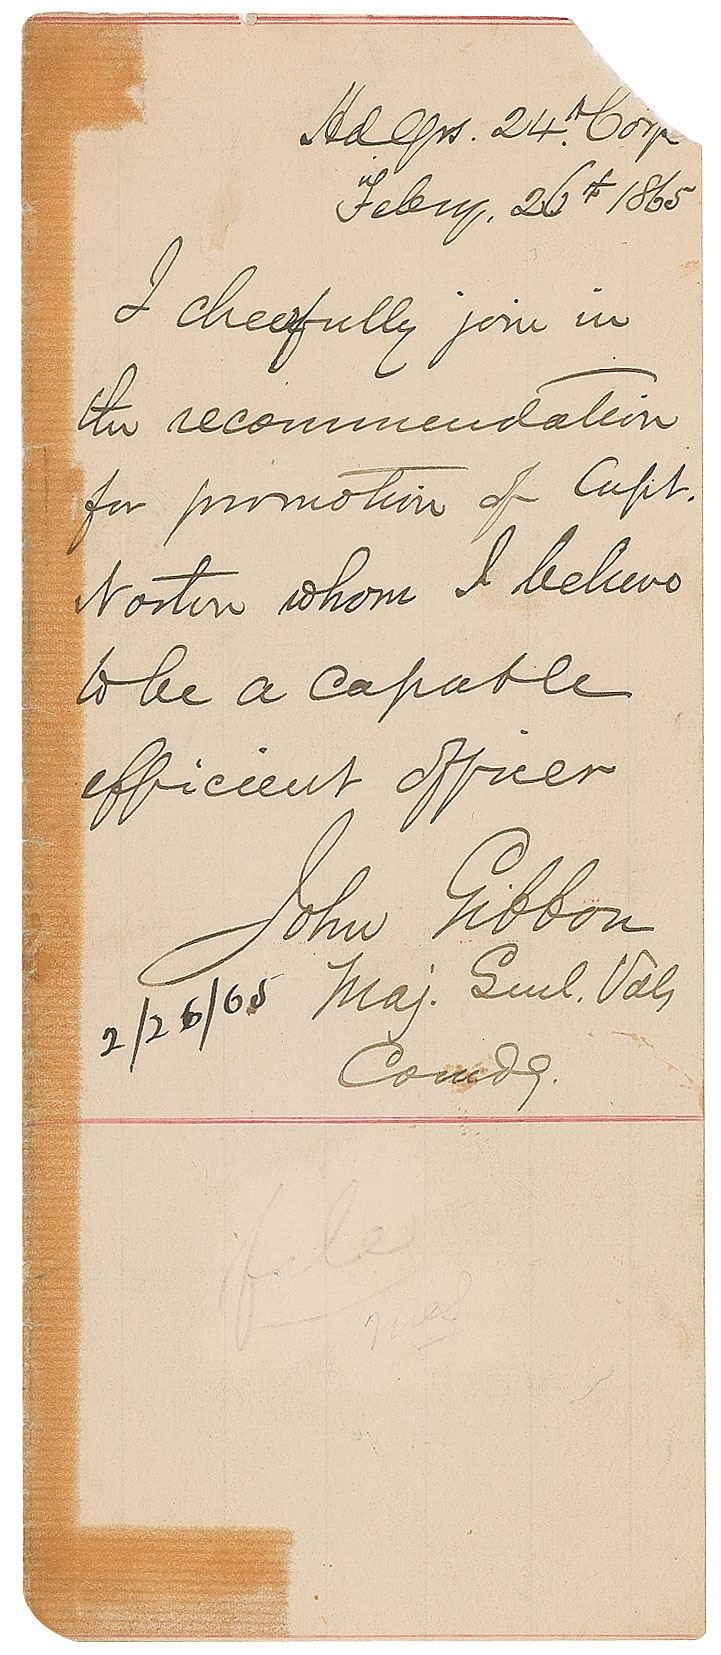 Hd Qrs. 24th Corp
Febry. 26th 1865
I cheerfully join in
the recommendation
for promotion of Capt.
Norton whom I believe
to be a capable
efficient officer
John Gibbon
Maj. Genl. Vols
2/26/65
Comdg.
file